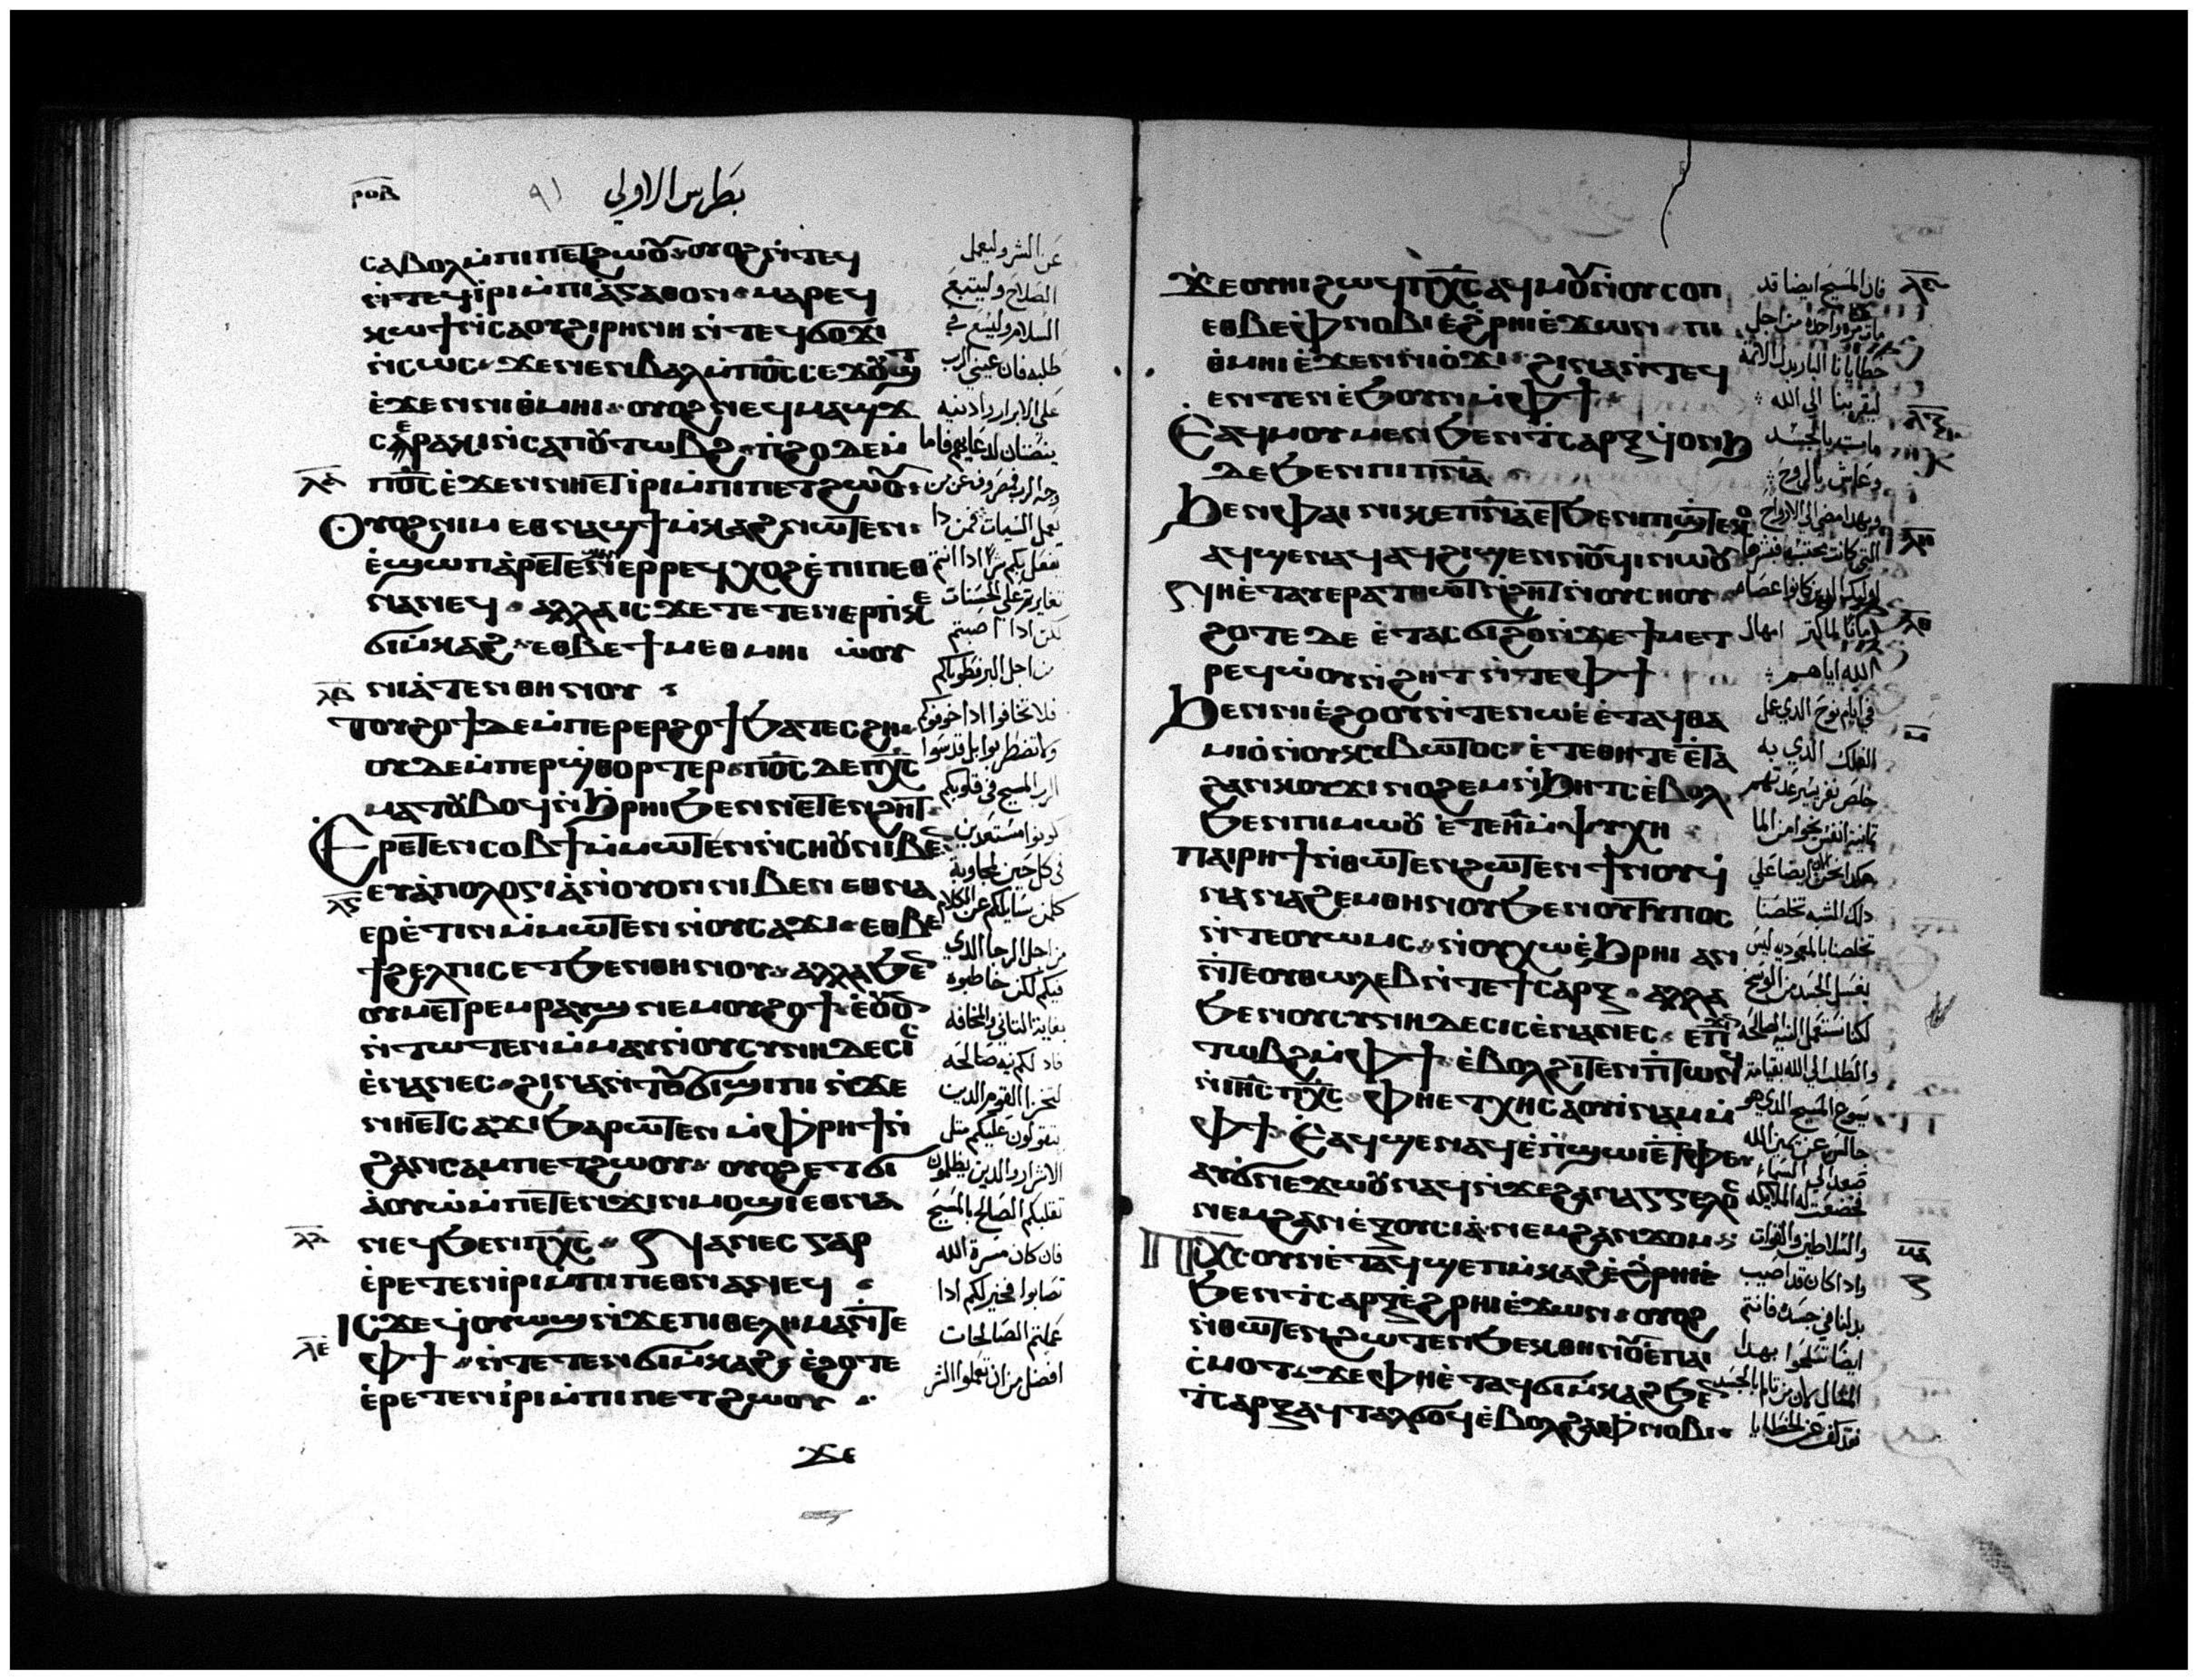 ⲣⲟⲃ ٩١ بطرس الاولي
ⲥⲁⲃⲟⲗ ⲙ̀ⲡⲓⲡⲉⲧϩⲱⲟⲩ ⲟⲩⲟϩ ⲛ̀ⲧⲉϥ
ⲛ̀ⲧⲉϥⲓ̀ⲣⲓ ⲙ̀ⲡⲓⲁ̀ⲅⲁⲑⲟⲛ ⲙⲁⲣⲉϥ
ⲕⲱϯ ⲛ̀ⲥⲁ ⲟⲩϩⲓⲣⲏⲛⲏ ⲛ̀ⲧⲉϥϭⲟϫⲓ
ⲛ̀ⲥⲱⲥ ϫⲉ ⲛⲉⲛⲃⲁⲗ ⲙ̀ⲡⲟ̅ⲥ̅ ⲥⲉϫⲟⲩϣⲧ
ⲉ̀ϫⲉⲛ ⲛⲓⲑⲙⲏⲓ ⲟⲩⲟϩ ⲛⲉϥⲙⲁϣϫ
ⲥⲉⲣⲁⲕⲓ ⲛ̀ⲥⲁ ⲡⲟⲩⲧⲱⲃϩ ⲡ̀ϩⲟ ⲇⲉ ⲙ̀
ⲡⲟ̅ⲥ̅ ⲉ̀ϫⲉⲛ ⲛⲏⲉⲧⲓ̀ⲣⲓ ⲙ̀ⲡⲓⲡⲉⲧϩⲱⲟⲩ
ⲟⲩⲟϩ ⲛⲓⲙ ⲉⲑⲛⲁϣϯⲙ̀ⲕⲁϩ ⲛⲱⲧⲉⲛ
ⲉ̀ϣⲱⲡ ⲁ̀ⲣⲉⲧⲉⲛϣⲁⲛⲉⲣⲣⲉϥⲭⲟϩ ⲉ̀ⲡⲓⲡⲉⲑ
ⲛⲁⲛⲉϥ ⲁⲗⲗⲁ ⲓⲥϫⲉ ⲧⲉⲧⲉⲛⲉⲣⲡⲕⲉ
ϭⲓⲙ̀ⲕⲁϩ ⲉⲑⲃⲉ ϯⲙⲉⲑⲙⲏⲓ ⲱ̀ⲟⲩ
ⲛⲓⲁ̀ⲧⲉⲛⲑⲏⲛⲟⲩ
ⲧⲟⲩϩⲟϯ ⲇⲉ ⲙ̀ⲡⲉⲣⲉⲣϩⲟϯ ϧⲁⲧⲉⲥϩⲏ
ⲟⲩⲇⲉ ⲙ̀ⲡⲉⲣϣ̀ⲑⲟⲣⲧⲉⲣ ⲡⲟ̅ⲥ̅ ⲇⲉ ⲡⲭ̅ⲥ̅
ⲙⲁⲧⲟⲩⲃⲟϥ ⲛ̀ϧⲣⲏⲓ ϧⲉⲛ ⲛⲉⲧⲉⲛϩⲏⲧ
ⲉⲣⲉⲧⲉⲛⲥⲟⲃϯ ⲙ̀ⲙⲱⲧⲉⲛ ⲛ̀ⲥⲏⲟⲩ ⲛⲓⲃⲉⲛ
ⲉⲩⲁ̀ⲡⲟⲗⲟⲅⲓⲁ̀ ⲛ̀ⲟⲩⲟⲛ ⲛⲓⲃⲉⲛ ⲉⲑⲛⲁ
ⲉⲣⲉ̀ⲧⲓⲛ ⲙ̀ⲙⲱⲧⲉⲛ ⲛ̀ⲟⲩⲥⲁϫⲓ ⲉⲑⲃⲉ
ϯϩⲉⲗⲡⲓⲥ ⲉⲧϧⲉⲛ ⲑⲏⲛⲟⲩ ⲁⲗⲗⲁ ϧⲉⲛ
ⲟⲩⲙⲉⲧⲣⲉⲙⲣⲁⲩϣ ⲛⲉⲙ ⲟⲩϩⲟϯ ⲉ̀ⲟⲩⲟ
ⲛ̀ⲧⲱⲧⲉⲛ ⲙ̀ⲙⲁⲩ ⲛ̀ⲟⲩⲥⲩⲛⲏⲇⲉⲥⲓⲥ
ⲉ̀ⲛⲁⲛⲉⲥ ϩⲓⲛⲁ ⲛ̀ⲧⲟⲩϭⲓϣⲓⲡⲓ ⲛ̀ϫⲉ
ⲛⲏⲉⲧⲥⲁϫⲓ ϧⲁⲣⲱⲧⲉⲛ ⲙ̀ⲫⲣⲏϯ ⲛ̀
ϩⲁⲛⲥⲁⲙⲡⲉⲧϩⲱⲟⲩ ⲟⲩⲟϩ ⲉⲧϭⲓ
ⲁ̀ⲟⲩⲱ ⲙ̀ⲡⲉⲧⲉⲛϫⲓⲛⲙⲟϣⲓ ⲉⲑⲛⲁ
ⲛⲉϥ ϧⲉⲛ ⲡⲭ̅ⲥ̅ ⲛⲁⲛⲉⲥ ⲅⲁⲣ
ⲉ̀ⲣⲉⲧⲉⲛⲓ̀ⲣⲓ ⲙ̀ⲡⲓⲡⲉⲑⲛⲁⲛⲉϥ
ⲓⲥϫⲉ ϥⲟⲩⲱϣ ⲛ̀ϫⲉ ⲡⲓⲑⲉⲗⲏⲙⲁ ⲛ̀ⲧⲉ
ⲫϯ ⲛ̀ⲧⲉⲧⲉⲛϭⲓⲙ̀ⲕⲁϩ ⲉ̀ϩⲟⲧⲉ
ⲉ̀ⲣⲉⲧⲉⲛⲓ̀ⲣⲓ ⲙ̀ⲡⲓⲡⲉⲧϩⲱⲟⲩ
ϫⲉ
ⲗⲁ
ⲗⲃ
ⲗⲅ
ⲗⲇ
ⲗⲉ
عن الشر وليعمل
الصلاح وليتبع
السلامه وليسع في
طلبه فان عيني الرب
على الابرار واذنيه
ينصتان لدعايهم فاما
وجه الرب فمصروف عن من
يعمل السيات فمن ذا
يفعل بكم شرا اذا انتم
تغايرتم على الحسنات
لكن اذا اصبتم
من اجل البر فطوباكم
فلا تخافوا اذا خوفوكم
ولا تضطربوا بل قدسوا
الرب المسيح في قلوبكم
كونوا مستعدين
في كل حين لمجاوبة
كلمن سايلكم عن الكلام
من اجل الرجا الذي
فيكم لكن خاطبوه
بغاية التاني والمخافه
فاد لكم نيه صالحه
ليخزا القوم الدين
يتقولون عليكم مثل
الاشرار والدين يظلمون
تقلبكم الصالح بالمسيح
فان كان مسرة الله
تصابوا فخير لكم ادا
عملتم الصالحات
افضل من ان تعملوا الشر
ϫⲉ ⲟⲩⲏⲓ ϩⲱϥ ⲡⲭ̅ⲥ̅ ⲁϥⲙⲟⲩ ⲛ̀ⲟⲩⲥⲟⲡ
ⲉⲑⲃⲉ ⲫⲛⲟⲃⲓ ⲉ̀ϩⲣⲏⲓ ⲉ̀ϫⲱⲛ ⲡⲓ
ⲑⲙⲏⲓ ⲉ̀ϫⲉⲛ ⲛⲓⲟ̀ϫⲓ ϩⲓⲛⲁ ⲛ̀ⲧⲉϥ
ⲉⲛⲧⲉⲛ ⲉ̀ϧⲟⲩⲛ ⲙ̀ⲫϯ
ⲉⲁϥⲙⲟⲩ ⲙⲉⲛ ϧⲉⲛ ⲧ̀ⲥⲁⲣⲝ ϥⲟⲛϧ
ⲇⲉ ϧⲉⲛ ⲡⲓⲡ̅ⲛ̅ⲁ̅
ϧⲉⲛ ⲫⲁⲓ ⲛⲓⲕⲉⲡ̅ⲛ̅ⲁ̅ ⲉⲧϧⲉⲛ ⲡⲓϣⲧⲉⲕⲟ
ⲁϥϣⲉⲛⲁϥ ⲁϥϩⲓϣⲉⲛⲛⲟⲩϥⲓ ⲛⲱⲟⲩ
ⲛⲏ ⲉ̀ⲧⲁⲩⲉⲣⲁⲧⲑⲱⲧ ⲛ̀ϩⲏⲧ ⲛ̀ⲟⲩⲥⲏⲟⲩ
ϩⲟⲧⲉ ⲇⲉ ⲉ̀ⲧⲁⲥϭⲓϩⲟ ⲛ̀ϫⲉ ϯⲙⲉⲧ
ⲣⲉϥⲱ̀ⲟⲩⲛ̀ϩⲏⲧ ⲛ̀ⲧⲉ ⲫϯ
ϧⲉⲛ ⲛⲓⲉ̀ϩⲟⲟⲩ ⲛ̀ⲧⲉ ⲛⲱⲉ̀ ⲉ̀ⲧⲁϥⲑⲁ
ⲙⲓⲟ̀ ⲛ̀ⲟⲩⲕⲓⲃⲱⲧⲟⲥ ⲉ̀ⲧⲉ ⲑⲏ ⲧⲉ ⲉ̀ⲧⲁ
ϩⲁⲛⲕⲟⲩϫⲓ ⲛⲟϩⲉⲙ ⲛ̀ϧⲏⲧⲥ ⲉ̀ⲃⲟⲗ
ϧⲉⲛ ⲡⲓⲙⲱⲟⲩ ⲉ̀ⲧⲉ ⲏ̅ ⲙ̀ⲯⲩⲭⲏ
ⲡⲁⲓⲣⲏϯ ⲛ̀ⲑⲱⲧⲉⲛ ϩⲱⲧⲉⲛ ϯⲛⲟⲩ ϥ̀
ⲛⲁⲛⲁϩⲉⲙ ⲑⲏⲛⲟⲩ ϧⲉⲛ ⲟⲩⲧⲩⲡⲟⲥ
ⲛ̀ⲧⲉ ⲟⲩⲱⲙⲥ ⲛ̀ⲟⲩⲭⲱ ⲉ̀ϧⲣⲏⲓ ⲁⲛ
ⲛ̀ⲧⲉ ⲟⲩⲑⲱⲗⲉⲃ ⲛ̀ⲧⲉ ϯⲥⲁⲣⲝ ⲁⲗⲗⲁ
ϧⲉⲛ ⲟⲩⲥⲩⲛⲏⲇⲉⲥⲓⲥ ⲉ̀ⲛⲁⲛⲉⲥ ⲉⲡϫⲓⲛ
ⲧⲱⲃϩ ⲙ̀ⲫϯ ⲉ̀ⲃⲟⲗϩⲓⲧⲉⲛ ⲡ̀ⲧⲱⲛϥ
ⲛ̀ⲓⲏ̅ⲥ̅ ⲡⲭ̅ⲥ̅ ⲫⲏ ⲉⲧⲭⲏ ⲥⲁⲟⲩⲓ̀ⲛⲁⲙ ⲙ̀
ⲫϯ ⲉⲁϥϣⲉⲛⲁϥ ⲉ̀ⲡϣⲱⲓ ⲉ̀ⲧⲫⲉ
ⲁⲩϭⲛⲉϫⲱⲟⲩ ⲛⲁϥ ⲛ̀ϫⲉ ϩⲁⲛⲁⲅⲅⲉⲗⲟⲥ
ⲛⲉⲙ ϩⲁⲛⲉ̀ⲝⲟⲩⲥⲓⲁ̀ ⲛⲉⲙ ϩⲁⲛϫⲟⲙ
ⲡⲭ̅ⲥ̅ ⲟⲩⲛ ⲉ̀ⲧⲁϥϣⲉⲡⲙ̀ⲕⲁϩ ⲉ̀ϩⲣⲏⲓ ⲉ̀
ϧⲉⲛ ⲧ̀ⲥⲁⲣⲝ ⲉϩⲣⲏⲓ ⲉ̀ϫⲱⲛ ⲟⲩⲟϩ
ⲛ̀ⲑⲱⲧⲉⲛ ϩⲱⲧⲉⲛ ϧⲉⲕⲑⲏⲛⲟⲩ ⲉ̀ⲡⲁⲓ
ⲥ̀ⲙⲟⲧ ϫⲉ ⲫⲏ ⲉ̀ⲧⲁϥϭⲓⲙ̀ⲕⲁϩ ϧⲉⲛ
ⲧ̀ⲥⲁⲣⲝ ⲁϥⲧⲁⲗϭⲟϥ ⲉ̀ⲃⲟⲗϩⲁ ⲫⲛⲟⲃⲓ
فان المسيح ايضا قد
مات مره واحده من اجل
خطايانا البار بدل الاثمه
ليقربنا الى الله
مات بالجسد
وعاش بالروح
وبهدا مضى الى الارواح
التي كانت محتبسه فبشرها
اوليك الدين كانوا عصاه
زمانا لما كتر امهال
الله اياهم
في ايام نوح الدي عمل
الفلك الدي به
خلص نفر يسير عدتهم
تمانية انفس نجوا من الما
هكدا نحن الان ايضا على
دلك الشبه تخلصنا
تخلصنا بالمعموديه ليس
بغسل الجسد من الوسخ
لكنا نستعمل النيه الصالحه
والطلب الى الله بقيامة
يسوع المسيح الدي هو
جالس عن يمين الله
صعد الى السماء
فخضعت له الملايكه
والسلاطين والقوات
واذا كان قد اصيب
بدلنا في جسده فانتم
ايضا تسلحوا بهدا
المثال لان من تالم بالجسد
فقد كف عن الخطايا
ⲗⲍ
ⲗⲏ
ⲗⲑ
ⲙ
ⲙⲁ